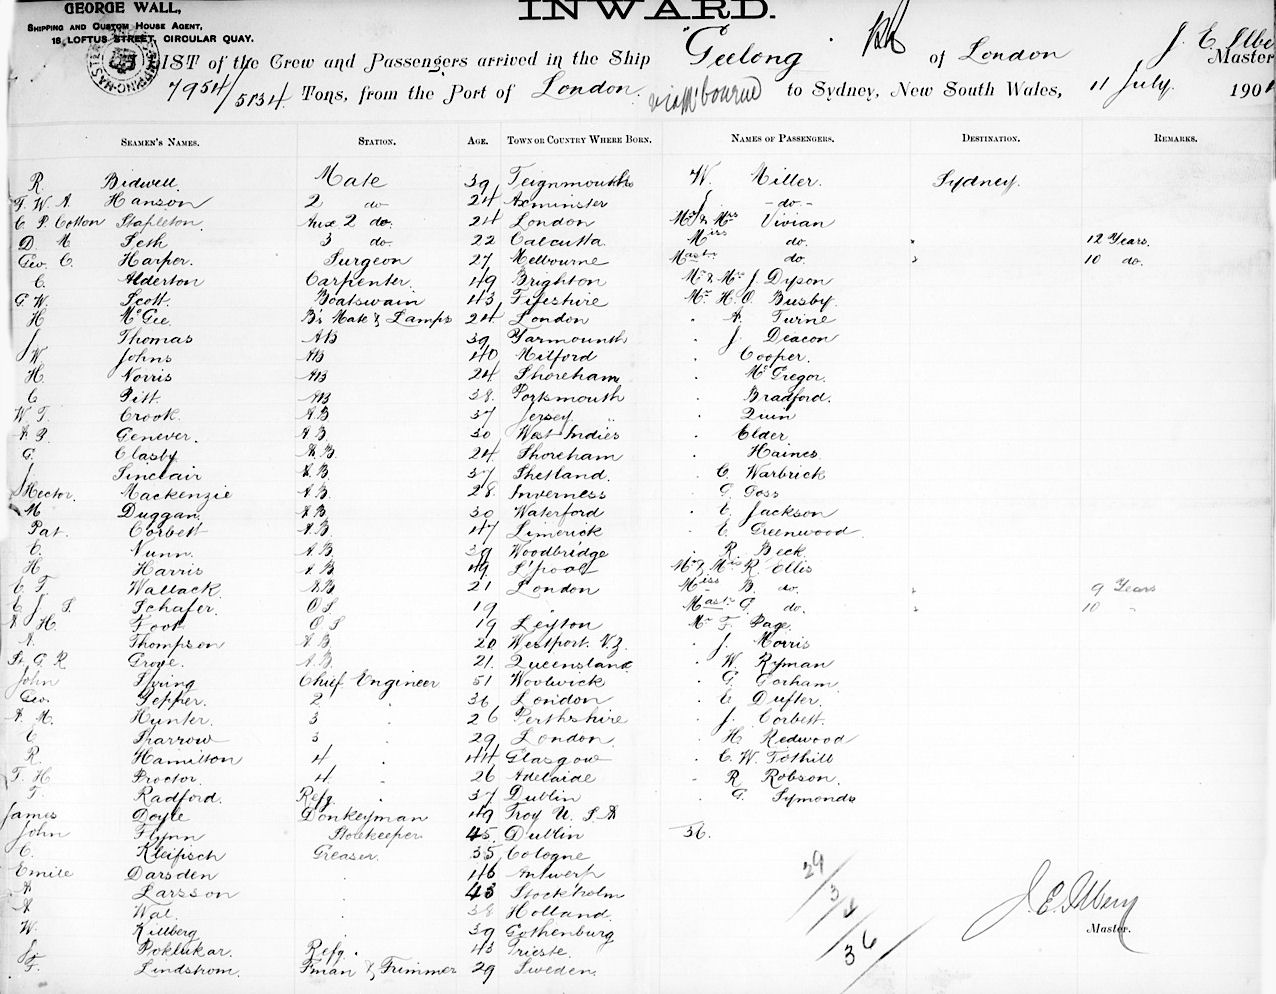 GEORGE WALL,
SHIPPING AND CUSTOM HOUSE AGENT,
18 LOFTUS STREET, CIRCULAR QUAY.
INWARD.
LIST of the Crew and Passengers arrived in the Ship "Geelong" of London J. E. Ilbery Master
7954/5134 Tons, from the Port of London via Mbourne to Sydney, New South Wales, 11 July 1904
SEAMEN'S NAMES. STATION. AGE. TOWN OR COUNTRY WHERE BORN. NAMES OF PASSENGERS. DESTINATION. REMARKS.
R. Bidwell. Mate 39 Teignmouth W. Miller. Sydney.
F. W. A. Hanson 2 do 24 Axminster J. - do -
C P. Cotton Stapleton. Aux 2 do. 24 London Mr & Mrs Vivian
D M Seth 3 do. 22 Calcutta Miss do. " 12 Years.
Geo. C. Harper. Surgeon 27 Melbourne Mastr do. " 10 do.
C. Alderton Carpenter 49 Brighton Mr & Mrs J. Dyson
G. W. Scott. Boatswain 43 Fifeshire Mr H. O. Busby.
H McGee. Bs Mate & Lamps 24 London . A Turne
J Thomas AB 39 Yarmouth . J. Deacon
W. Johns AB 40 Milford . Cooper.
H. Norris AB 24 Shoreham . McGregor.
C Pitt. AB 38 Portsmouth . Bradford.
W. T. Crook. A.B. 37 Jersey . Quin
A P. Genever. A B. 30 West Indies . Elder
G. Clasby A.B. 24 Shoreham . Haines
J Sinclair A.B. 37 Shetland. . C. Warbrick
Hector. Mackenzie A.B. 28 Inverness . G Goss
M Duggan. A.B. 30 Waterford . E. Jackson
Pat. Corbett A.B. 47 Limerick . E. Greenwood
C. Nunn. A.B. 39 Woodbridge . R. Beck.
H Harris A.B. 49 L'pool Mr & Mrs R. Ellis
C T. Wallack A.B. 21 London Miss B. do. " 9 Years
E J. S. Schafer. O S. 19 . Mastr G. do. " 10 "
A H Foot O S 19 Leyton Mr F. Page.
A. Thompson A.B. 20 Westport. N.Z. . J. Morris
St. G. R. Grove. A.B. 21. Queensland . W. Ryman
John Spring Chief Engineer 51 Woolwick . G. Gorham.
Geo. Pepper. 2 . 36 London . E Dufter.
A. M. Hunter. 3 . 26 Perthshire . J. Corbett.
C Sparrow 3 . 29 London . H. Redwood
R. Hamilton 4 . 44 Glasgow . C. W. Tothill
T. H Proctor. 4 . 26 Adelaide . R. Robson.
T. Radford. Refg. . 37 Dublin . G. Symonds
James Doyle Donkeyman 49 Troy U. S. A
John Flynn Storekeeper 45 Dublin 36.
C. Kleifisch Greaser. 35 Cologne
Emile Darsden . 46 Antwerp 29/3/4
A Larsson . 43 Stockholm
A Wal. . 38 Holland. J. E. Ilbery
W. Killberg . 39 Gothenburg Master.
Poklukar. Refg. . 43 Trieste. 36
F. Lindstrom. Fman & Trimmer 29 Sweden.